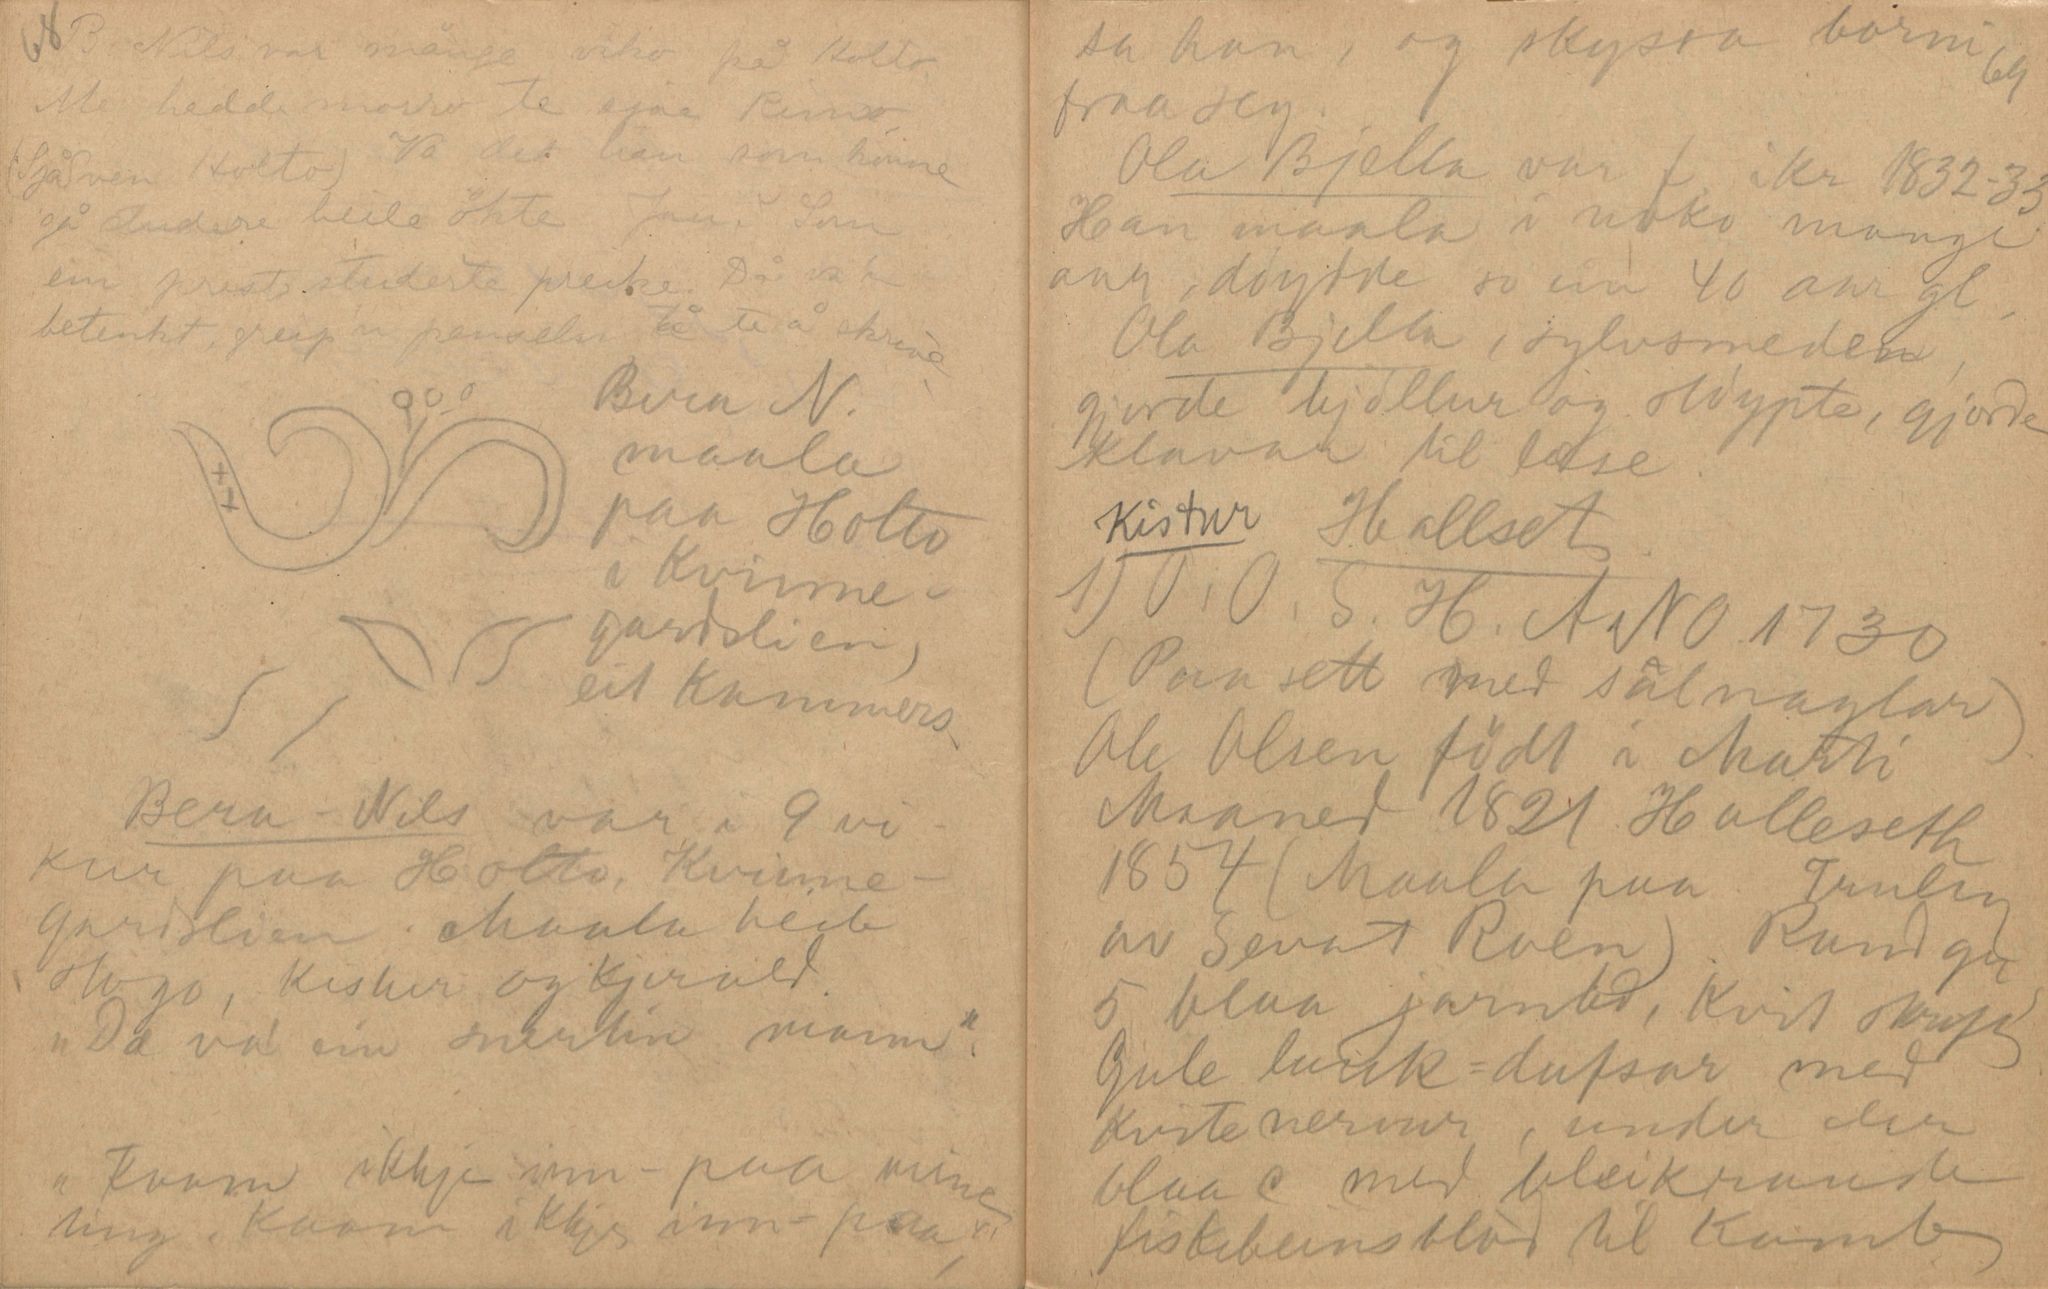 68
B. Nils var månge viko på Holto.
Me hedde morro te sjåe
(Sjå ven Holto) Va det han som kunne
gå studere heile ökte Jau! Som
ein prest studerte preike. Då va h
betenkt, greip 'n penseln te å skrive
Bera N.
maala
paa Holto
i Kvinne-
gardslien,
eit Kammers
Bera-Nils var i 9 vi-
kur paa Holto, Kvinne-
gardslien. Maala heile
stogo, kistur og kjerald.
"Da va ein snertin mann".
"Kaam ikkje inn-paa mine
ting. Kaam ikkje inn-paa,"
69
sa han, og skyssa borni
fraa seg.
Ola Bjella var f. ikr 1832-33
Han maala i noko mange
aar, döydde so ein 40 aar gl.
Ola Bjella, sylvsmeden,
gjorde bjöllur og stöypte, gjorde
klavar til læse.
Kistur Hallset.
1) O. O. S. H. ANNO 1730
(Paasett med sålnaglar)
Ole Olsen födt i Marti
Maaned 1821 Halleseth
1854 (Maala paa Trulsy
av Sevat Roen) Rund gul
5 blaa jarnbd, kvit skrift
Gule lauk-dufsar med
kvite nervur, under der
blaa c med bleikraude
fiskebeinsblod til Kamb